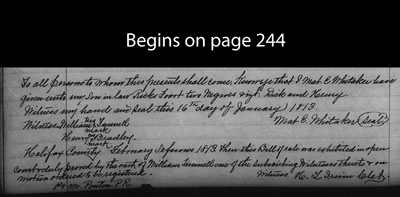 Begins on page 244
To all persons to whom this presents shall come, Know ye that I Mat. C. Whitaker have
given unto my Son in law Ricks Foort two Negroes viz. Dick and Henry
Witness my hand and seal this 16th day of January 1813.
Witness William his Tunnell Mat C. Whitaker (Seal)
mark
Henry his Bradley
mark
Halifax County February Sessions 1813 Then this Bill of sale was exhibited in open
court & duly proved by the oath of William Tunnell one of the Subscribing Witnesses thereto & on
motion ordered to be registered. Witness
P. R.